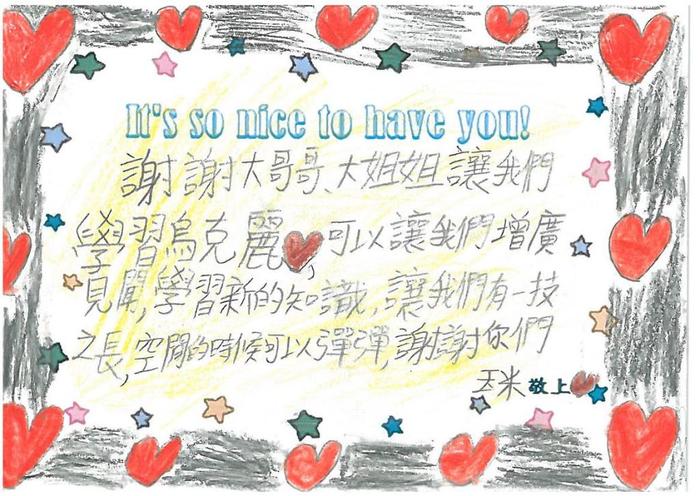 It's so nice to have you!
謝謝大哥哥、大姐姐讓我們
學習烏克麗,可以讓我們增廣
見聞,學習新的知識,讓我們有一技
之長,空閒的時候可以彈彈,謝謝你們
玉米敬上